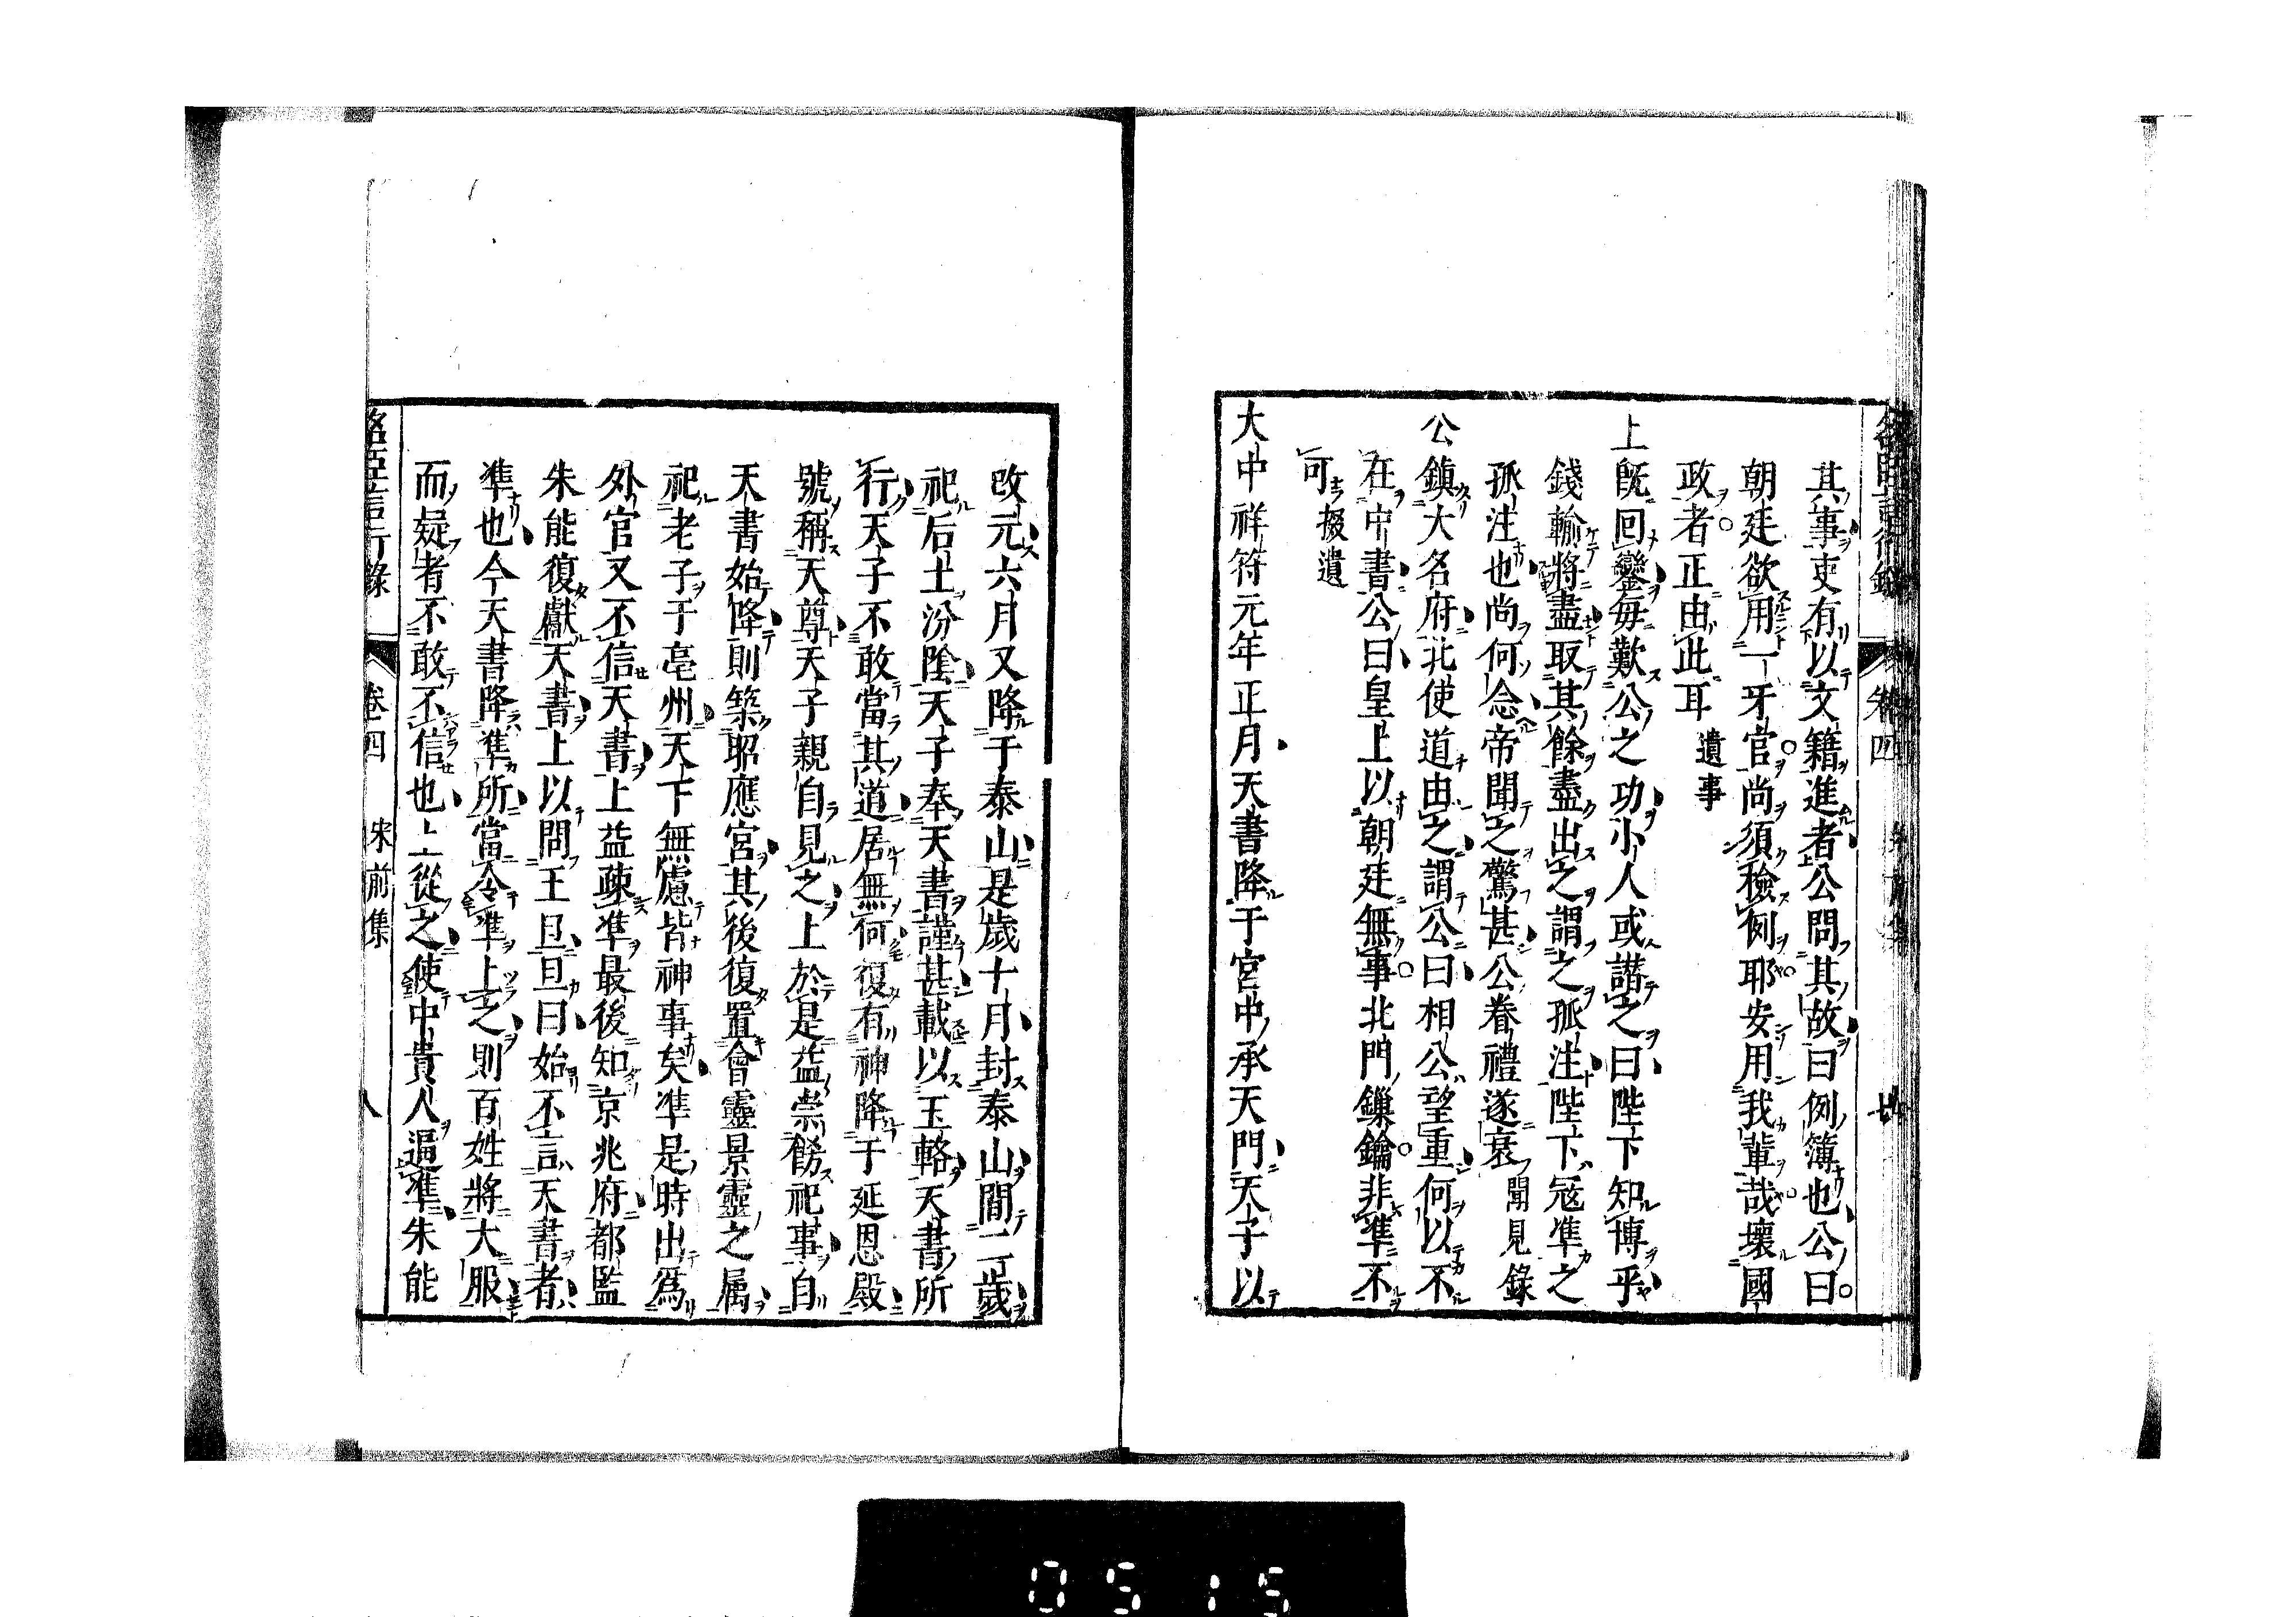 其事吏有以文籍進者公問其故曰例簿也公曰
朝廷欲用一牙官尚須檢例耶安用我輩哉壞國
政者正由此耳 遺事
上既回鑾每歎公之功小人或譖之曰陛下知博乎
錢輸將盡取其餘盡出之謂之孤注陛下冦準之
孤注也尚何念帝聞之驚甚公眷禮遂衰 聞見錄
公鎮大名府北使道由之謂公曰相公望重何以不
在中書公曰皇上以朝廷無事北門鏁鑰非準不
可 掇遺
大中祥符元年正月天書降于宮中承天門天子以
改元六月又降于泰山是歲十月封泰山間二歲
祀后土汾隂天子奉天書謹甚載以玉輅天書所
行天子不敢當其道居無何復有神降于延恩殿
號稱天尊天子親自見之上於是益崇餝祀事自
天書始降則築昭應宮其後復置會靈景靈之属
祀老子于亳州天下無慮皆神事矣準是時出爲
外官又不信天書上益疎準最後知京兆府都監
朱能復獻天書上以問王旦旦曰始不言天書者
準也今天書降準所當令準上之則百姓將大服
而疑者不敢不信也上從之使中貴人逼準朱能
名臣言行錄 卷四 宋前集 八
0515